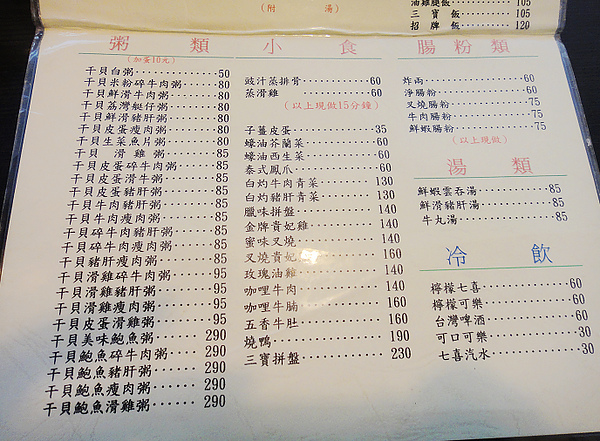 (附 湯)
油雞腿飯 105
三寶飯 105
招牌飯 120
粥 類
(加蛋10元)
干貝白粥 50
干貝米粉碎牛肉粥 80
干貝鮮滑牛肉粥 80
干貝荔灣艇仔粥 80
干貝鮮滑豬肝粥 80
干貝皮蛋瘦肉粥 80
干貝生菜魚片粥 80
干貝 滑雞粥 85
干貝皮蛋碎牛肉粥 85
干貝皮蛋滑牛粥 85
干貝皮蛋豬肝粥 85
干貝牛肉豬肝粥 85
干貝牛肉瘦肉粥 85
干貝碎牛肉豬肝粥 85
干貝碎牛肉瘦肉粥 85
干貝豬肝瘦肉粥 85
干貝滑雞碎牛肉粥 95
干貝滑雞豬肝粥 95
干貝滑雞瘦肉粥 95
干貝皮蛋滑雞粥 95
干貝美味鮑魚粥 290
干貝鮑魚碎牛肉粥 290
干貝鮑魚豬肝粥 290
干貝鮑魚瘦肉粥 290
干貝鮑魚滑雞粥 290
小 食
豉汁蒸排骨 60
蒸滑雞 60
(以上現做15分鐘)
子薑皮蛋 35
蠔油芥蘭菜 60
蠔油西生菜 60
泰式鳳爪 60
白灼牛肉青菜 130
白灼豬肝青菜 130
臘味拼盤 140
金牌貴妃雞 140
蜜味叉燒 140
叉燒貴妃 160
玫瑰油雞 140
咖哩牛肉 140
咖哩牛腩 160
五香牛肚 160
燒鴨 190
三寶拼盤 230
腸粉類
炸兩 60
淨腸粉 60
叉燒腸粉 75
牛肉腸粉 75
鮮蝦腸粉 75
(以上現做)
湯 類
鮮蝦雲吞湯 85
鮮滑豬肝湯 85
牛丸湯 85
冷 飲
檸檬七喜 60
檸檬可樂 60
台灣啤酒 60
可口可樂 30
七喜汽水 30